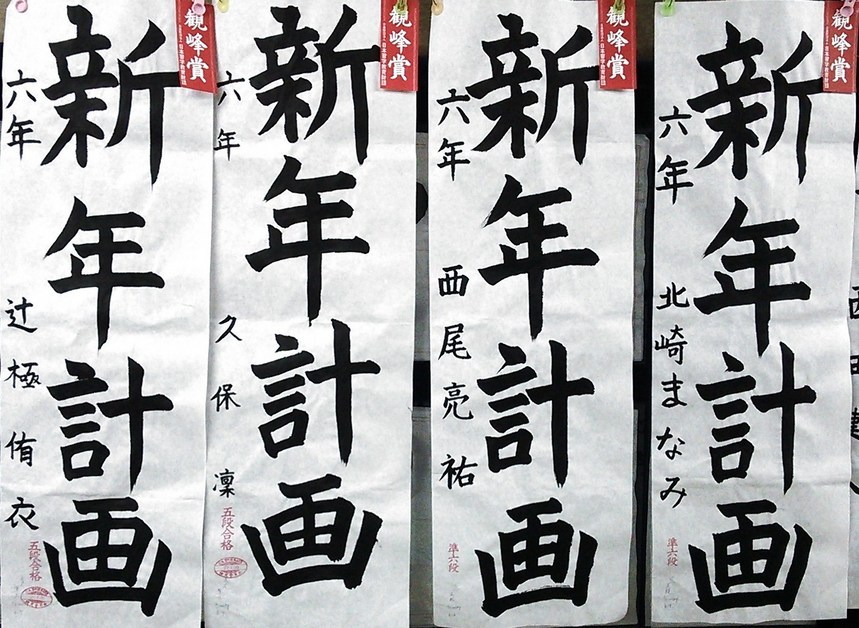 観峰賞
新年計画
六年 辻極侑衣
五段合格
観峰賞
新年計画
六年 久保凜
五段合格
観峰賞
新年計画
六年 西尾亮祐
準六段
観峰賞
新年計画
六年 北崎まなみ
準六段